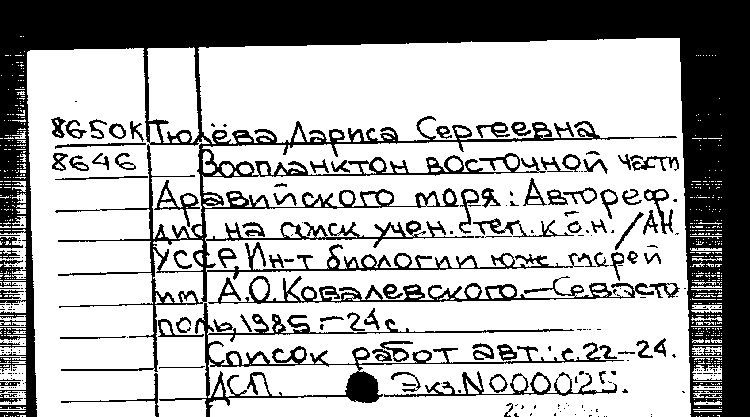 8650К Тюлёва, Лариса Сергеевна
8646 Зоопланктон восточной части
Аравийского моря: Автореф.
дис. на соиск учен. степ. к.б.н. / АН
УССР, Ин-т биологии юж. морей
им. А.О. Ковалевского. — Севасто
поль, 1985. — 24 с.
Список работ авт.: с. 22–24.
ДСП. Экз. N000025.